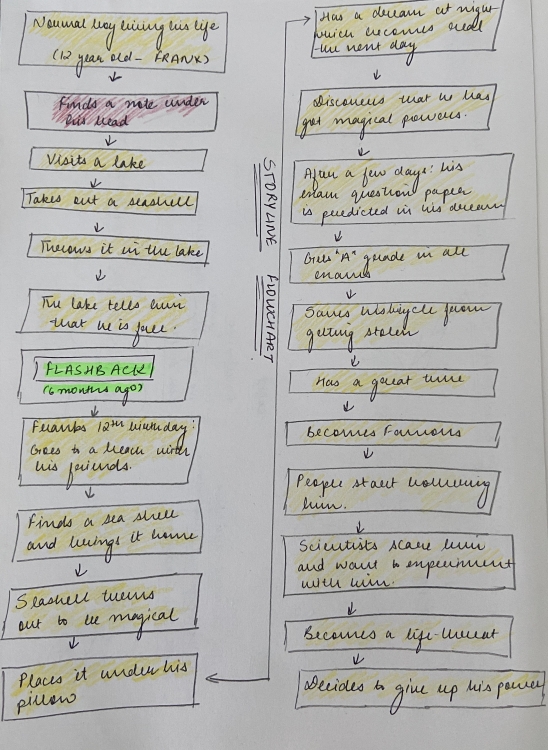 Normal boy living his life
(12 year old - FRANK)
Finds a note under
his bead
Visits a lake
Takes out a seashell
Throws it in the lake
The lake tells him
that he is free.
FLASHBACK
(6 months ago)
Franks 12th birthday:
Goes to a beach with
his friends.
Finds a sea shell
and brings it home
Seashell turns
out to be magical
Places it under his
pillow
STORYLINE FLOWCHART
Has a dream at night
which becomes real
the next day
Discovers that he has
got magical powers.
After a few days: his
exam question paper
is predicted in his dream
Gets "A" grade in all
exams
Saves his bicycle from
getting stolen
Has a great time
Becomes Famous
People start
him.
Scientists scare him
and want to experiment
with him.
Becomes a life-threat
Decides to give up his power